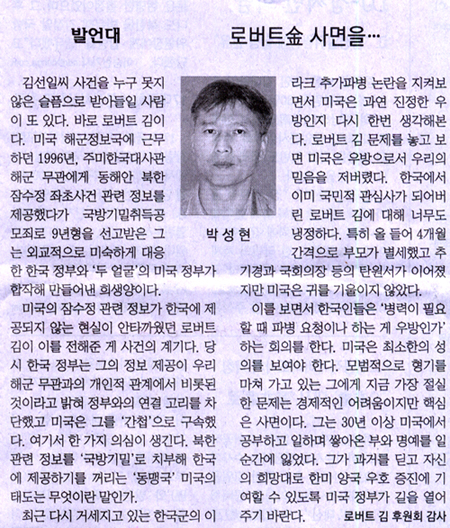 발언대
로버트金 사면을…
김선일씨 사건을 누구 못지
않은 슬픔으로 받아들일 사람
이 또 있다. 바로 로버트 김이
다. 미국 해군정보국에 근무
하던 1996년, 주미한국대사관
해군 무관에게 동해안 북한
잠수정 좌초사건 관련 정보를
제공했다가 국방기밀취득공
모죄로 9년형을 선고받은 그
는 외교적으로 미숙하게 대응
한 한국 정부와 '두 얼굴'의 미국 정부가
합작해 만들어낸 희생양이다.
미국의 잠수정 관련 정보가 한국에 제
공되지 않는 현실이 안타까웠던 로버트
김이 이를 전해준 게 사건의 계기다. 당
시 한국 정부는 그의 정보 제공이 우리
해군 무관과의 개인적 관계에서 비롯된
것이라고 밝혀 정부와의 연결 고리를 차
단했고 미국은 그를 '간첩'으로 구속했
다. 여기서 한 가지 의심이 생긴다. 북한
관련 정보를 '국방기밀'로 치부해 한국
에 제공하기를 꺼리는 '동맹국' 미국의
태도는 무엇이란 말인가.
최근 다시 거세지고 있는 한국군의 이
박성현
라크 추가파병 논란을 지켜보
면서 미국은 과연 진정한 우
방인지 다시 한번 생각해본
다. 로버트 김 문제를 놓고 보
면 미국은 우방으로서 우리의
믿음을 저버렸다. 한국에서
이미 국민적 관심사가 되어버
린 로버트 김에 대해 너무도
냉정하다. 특히 올 들어 4개월
간격으로 부모가 별세했고 추
기경과 국회의장 등의 탄원서가 이어졌
지만 미국은 귀를 기울이지 않았다.
이를 보면서 한국인들은 '병력이 필요
할 때 파병 요청이나 하는 게 우방인가'
하는 회의를 한다. 미국은 최소한의 성
의를 보여야 한다. 모범적으로 형기를
마쳐 가고 있는 그에게 지금 가장 절실
한 문제는 경제적인 어려움이지만 핵심
은 사면이다. 그는 30년 이상 미국에서
공부하고 일하며 쌓아온 부와 명예를 일
순간에 잃었다. 그가 과거를 딛고 자신
의 희망대로 한미 양국 우호 증진에 기
여할 수 있도록 미국 정부가 길을 열어
주기 바란다.
로버트 김 후원회 감사